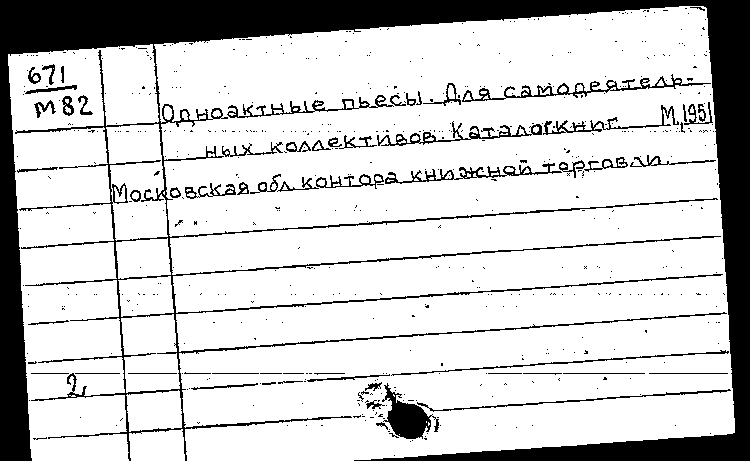 671
М82
Одноактные пьесы. Для самодеятель-
ных коллективов. Каталог книг. М, 1951
Московская обл контора книжной торговли.
2